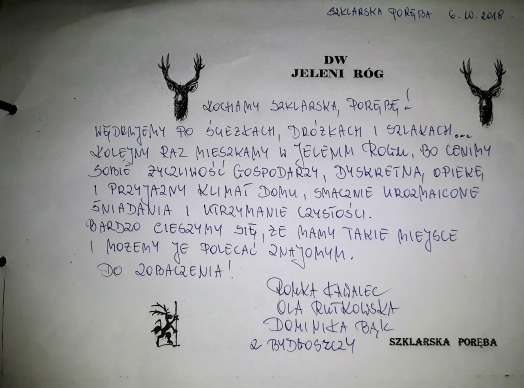 SZKLARSKA PORĘBA 6.10.2018
DW
JELENI RÓG
KOCHAMY SZKLARSKĄ PORĘBĘ!
WĘDRUJEMY PO ŚCIEŻKACH, DRÓŻKACH I SZLAKACH...
KOLEJNY RAZ MIESZKAMY W JELENIM ROGU, BO CENIMY
SOBIE ŻYCZLIWOŚĆ GOSPODARZY, DYSKRETNĄ OPIEKĘ
I PRZYJAZNY KLIMAT DOMU, SMACZNE UROZMAICONE
ŚNIADANIA I UTRZYMANIE CZYSTOŚCI.
BARDZO CIESZYMY SIĘ, ŻE MAMY TAKIE MIEJSCE
I MOŻEMY JE POLECAĆ ZNAJOMYM.
DO ZOBACZENIA!
ROMKA KAWALEC
OLA RUTKOWSKA
DOMINIKA BĄK
Z BYDGOSZCZY
SZKLARSKA PORĘBA